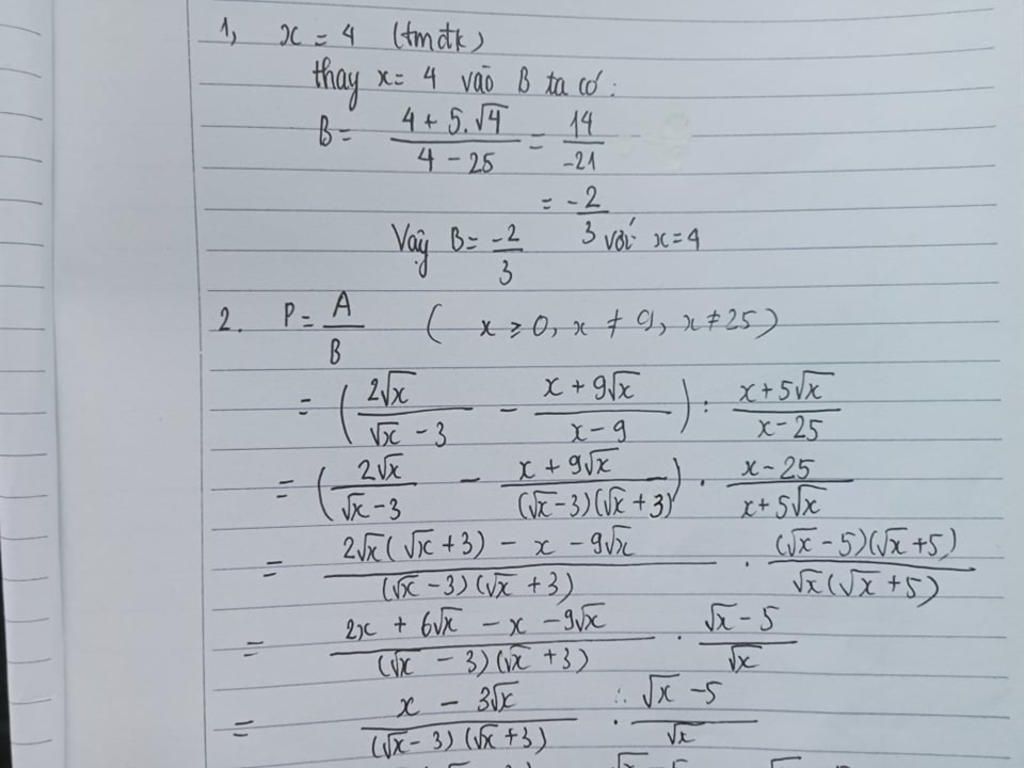 1, x = 4 (tmđk)
thay x = 4 vào B ta có:
B = (4 + 5.√4)/(4 - 25) = 14/-21
= -2/3
Vậy B = -2/3 với x = 4
2. P = A/B ( x ≥ 0, x ≠ 9, x ≠ 25)
= (2√x/(√x - 3) - (x + 9√x)/(x - 9)) : (x + 5√x)/(x - 25)
= (2√x/(√x - 3) - (x + 9√x)/((√x - 3)(√x + 3))) . (x - 25)/(x + 5√x)
= (2√x(√x + 3) - x - 9√x)/((√x - 3)(√x + 3)) . ((√x - 5)(√x + 5))/(√x(√x + 5))
= (2x + 6√x - x - 9√x)/((√x - 3)(√x + 3)) . (√x - 5)/√x
= (x - 3√x)/((√x - 3)(√x + 3)) . (√x - 5)/√x